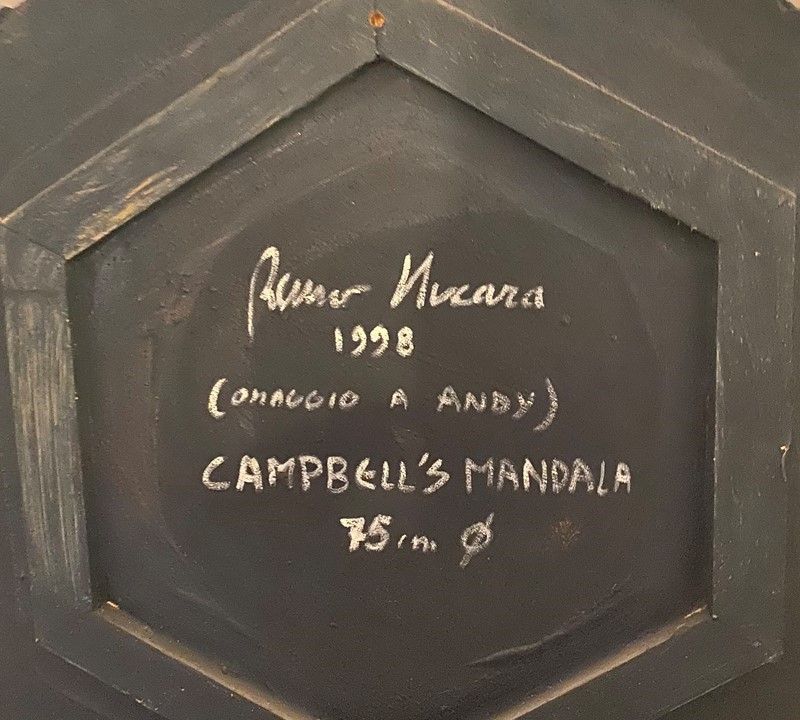 Renzo Nucara
1998
(OMAGGIO A ANDY)
CAMPBELL'S MANDALA
75 cm Ø